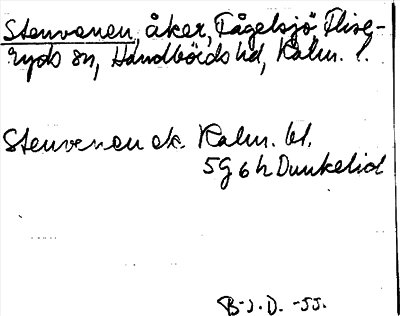 Stenvenen, åker, Fågelsjö, Flise-
ryds sn, Handbörds hd, Kalm. l.
Stenvenen ak. Kalm. bl.
5G 6h Dunkelid
B-J.D. -55.